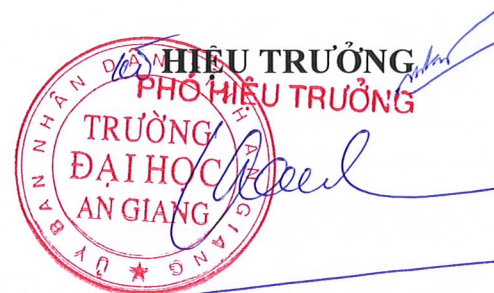 HIỆU TRƯỞNG
PHÓ HIỆU TRƯỞNG
ỦY BAN NHÂN DÂN
AN GIANG
TRƯỜNG
ĐẠI HỌC
AN GIANG